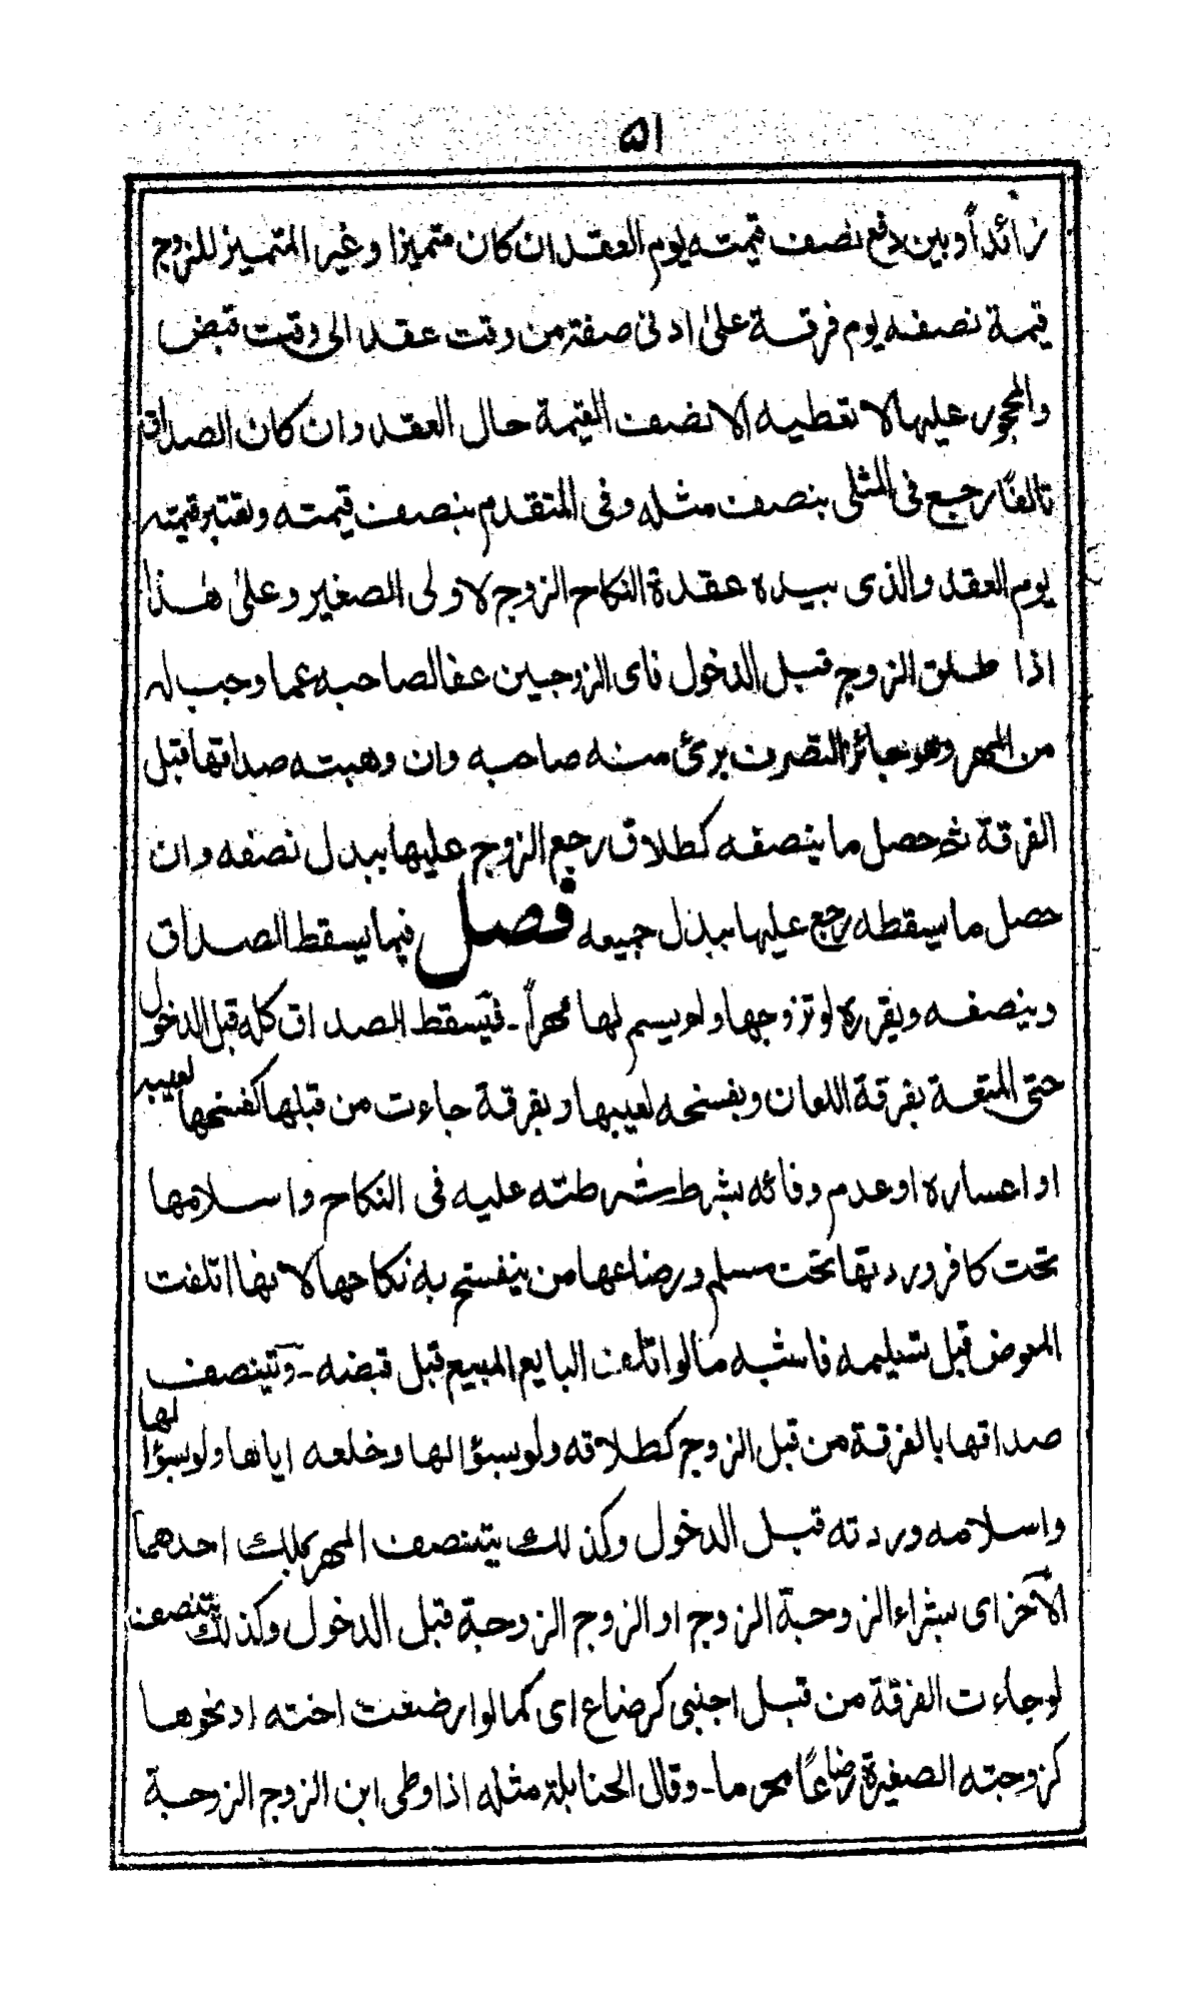 ٥١
زائداً وبين دفع نصف قيمته يوم العقد ان كان متميزا وغير المتميز للزوج
قيمة نصفه يوم فرقة علىٰ ادنى صفة من وقت عقد الى وقت قبض
والمحجور عليها لا تعطيه الا نصف القيمة حال العقد وان كان الصداق
تالفًا رجع فى المثلى بنصف مثله وفى المتقدم بنصف قيمته وتعتبر قيمته
يوم العقد والذى بيده عقدة النكاح الزوج لا ولى الصغير وعلىٰ هٰذا
اذا طلق الزوج قبل الدخول فاى الزوجين عفا لصاحبه عما وجب له
من المهر وهو جائز التصرف برئ منه صاحبه وان وهبته صداقها قبل
الفرقة ثم حصل ما ينصفه كطلاق رجع الزوج عليها ببدل نصفه وان
حصل ما يسقطه رجع عليها ببدل جميعه فصل فيما يسقط الصداق
وينصفه ويقرره لو تزوجها ولم يسم لها مهراً - فيسقط الصداق كله قبل الدخول
حتى المتعة بفرقة اللعان وبفسخه لعيبها وبفرقة جاءت من قبلها كفسخها لعيبه
او اعساره او عدم وفائه بشرط شرطته عليه فى النكاح واسلامها
تحت كافر وردتها تحت مسلم ورضاعها من ينفسخ به نكاحها لانها اتلفت
المعوض قبل تسليمه فاشبه ما لو اتلف البايع المبيع قبل قبضه - ويتنصف
صداقها بالفرقة من قبل الزوج كطلاقه ولو بسؤالها وخلعه اياها ولو بسؤالها
واسلامه وردته قبل الدخول وكذلك يتنصف المهر بملك احدهما
الآخر اى بشراء الزوجة الزوج او الزوج الزوجة قبل الدخول وكذلك يتنصف
لو جاءت الفرقة من قبل اجنبى كرضاع اى كما لو ارضعت اخته او نحوها
كزوجته الصغيرة رضاعًا محرما - وقال الحنابلة مثله اذا وطى ابن الزوج الزوجة